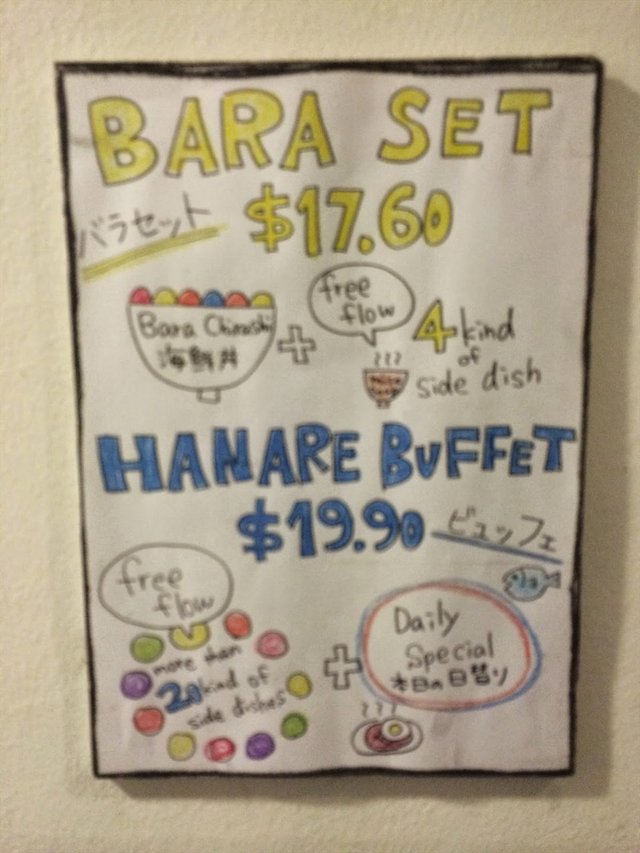 BARA SET
バラセット $17.60
Bara Chirashi
海鮮丼
+
free
flow
4 kind
of
side dish
HANARE BUFFET
$19.90 ビュッフェ
free
flow
more than
20 kind of
side dishes
+
Daily
Special
本日の日替り